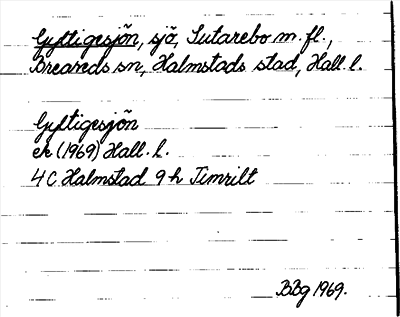 Gyttigesjön, sjö, Sutarebo m. fl.,
Breareds sn, Halmstads stad, Hall. l.
Gyltigesjön
ek (1969) Hall. l.
4C Halmstad 9h Timrilt
BBg 1969.